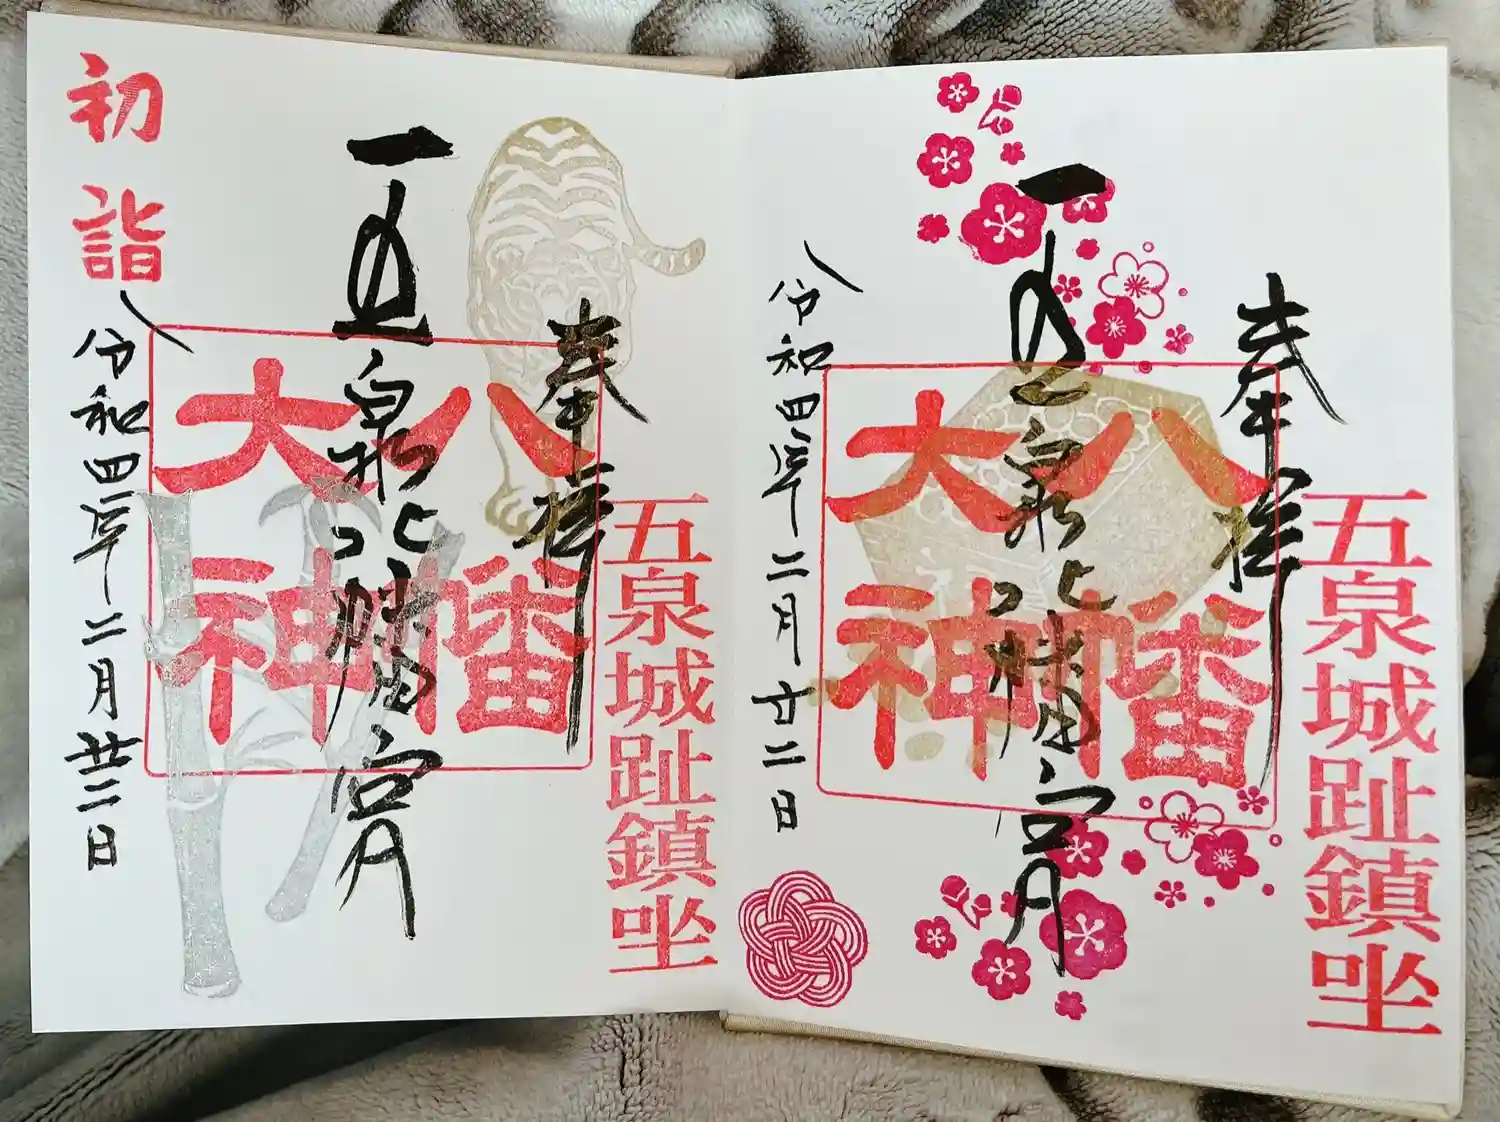 奉拝
五泉城趾鎮坐
八幡大神
五泉八幡宮
令和四年二月廿二日
奉拝
五泉城趾鎮坐
八幡大神
五泉八幡宮
令和四年二月廿二日
初詣